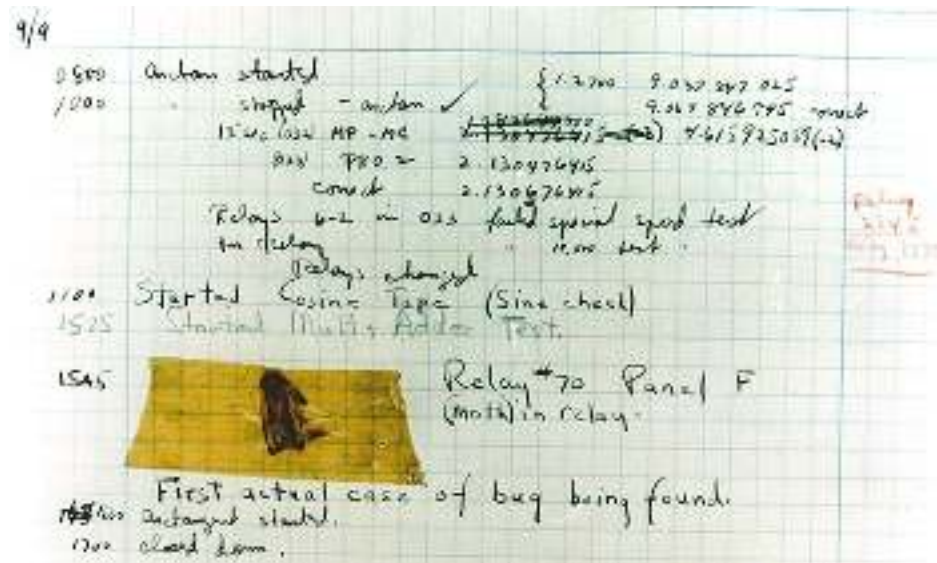 9/9
0800 antan started
1000 " stopped - antan ✓ { 1.2700 9.037 847 025
9.037 846 795 correct
13"uc (032) MP-MC 4.615925059(-2)
033 PRO 2 2.130476415
correct 2.130676415
Relays 6-2 in 033 failed special speed test
in relay " 10.000 test "
Relays changed
1100 Started Cosine Tape (Sine check)
1525 Started Multi Adder Test.
1545 Relay #70 Panel F
(moth) in relay.
First actual case of bug being found.
1600 antangent started.
1700 closed down.